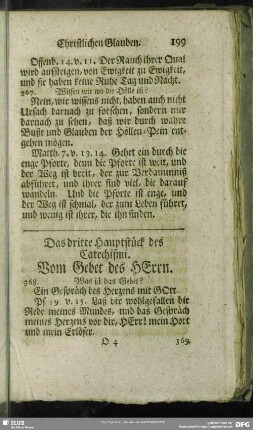 Christlichen Glauben. 199
Offenb. 14. v. 11. Der Rauch ihrer Qual
wird aufsteigen, von Ewigkeit zu Ewigkeit,
und sie haben keine Ruhe Tag und Nacht.
367. Wissen wir wo die Hölle ist?
Nein, wir wissens nicht, haben auch nicht
Ursach darnach zu forschen, sondern nur
darnach zu sehen, daß wir durch wahre
Buße und Glauben der Höllen-Pein ent-
gehen mögen.
Matth. 7. v. 13. 14. Gehet ein durch die
enge Pforte, denn die Pforte ist weit, und
der Weg ist breit, der zur Verdammniß
abführet, und ihrer sind viel, die darauf
wandeln. Und die Pforte ist enge, und
der Weg ist schmal, der zum Leben führet,
und wenig ist ihrer, die ihn finden.
Das dritte Hauptstück des
Catechismi.
Vom Gebet des HErrn.
368. Was ist das Gebet?
Ein Gespräch des Herzens mit GOtt.
Ps. 19. v. 15. Laß dir wohlgefallen die
Rede meines Mundes, und das Gespräch
meines Herzens vor dir, HErr! mein Hort
und mein Erlöser.
O 4 369.
SLUB
DFG